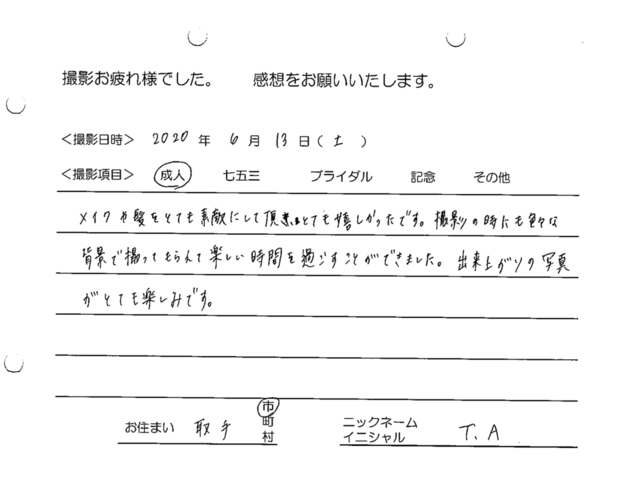 撮影お疲れ様でした。 感想をお願いいたします。
<撮影日時> 2020 年 6 月 13 日(土)
<撮影項目> 成人 七五三 ブライダル 記念 その他
メイクや髪をとても素敵にして頂きとても嬉しかったです。撮影の時にも色々な
背景で撮ってもらえて楽しい時間を過ごすことができました。出来上がりの写真
がとても楽しみです。
お住まい 取手 市町村 ニックネーム イニシャル T.A